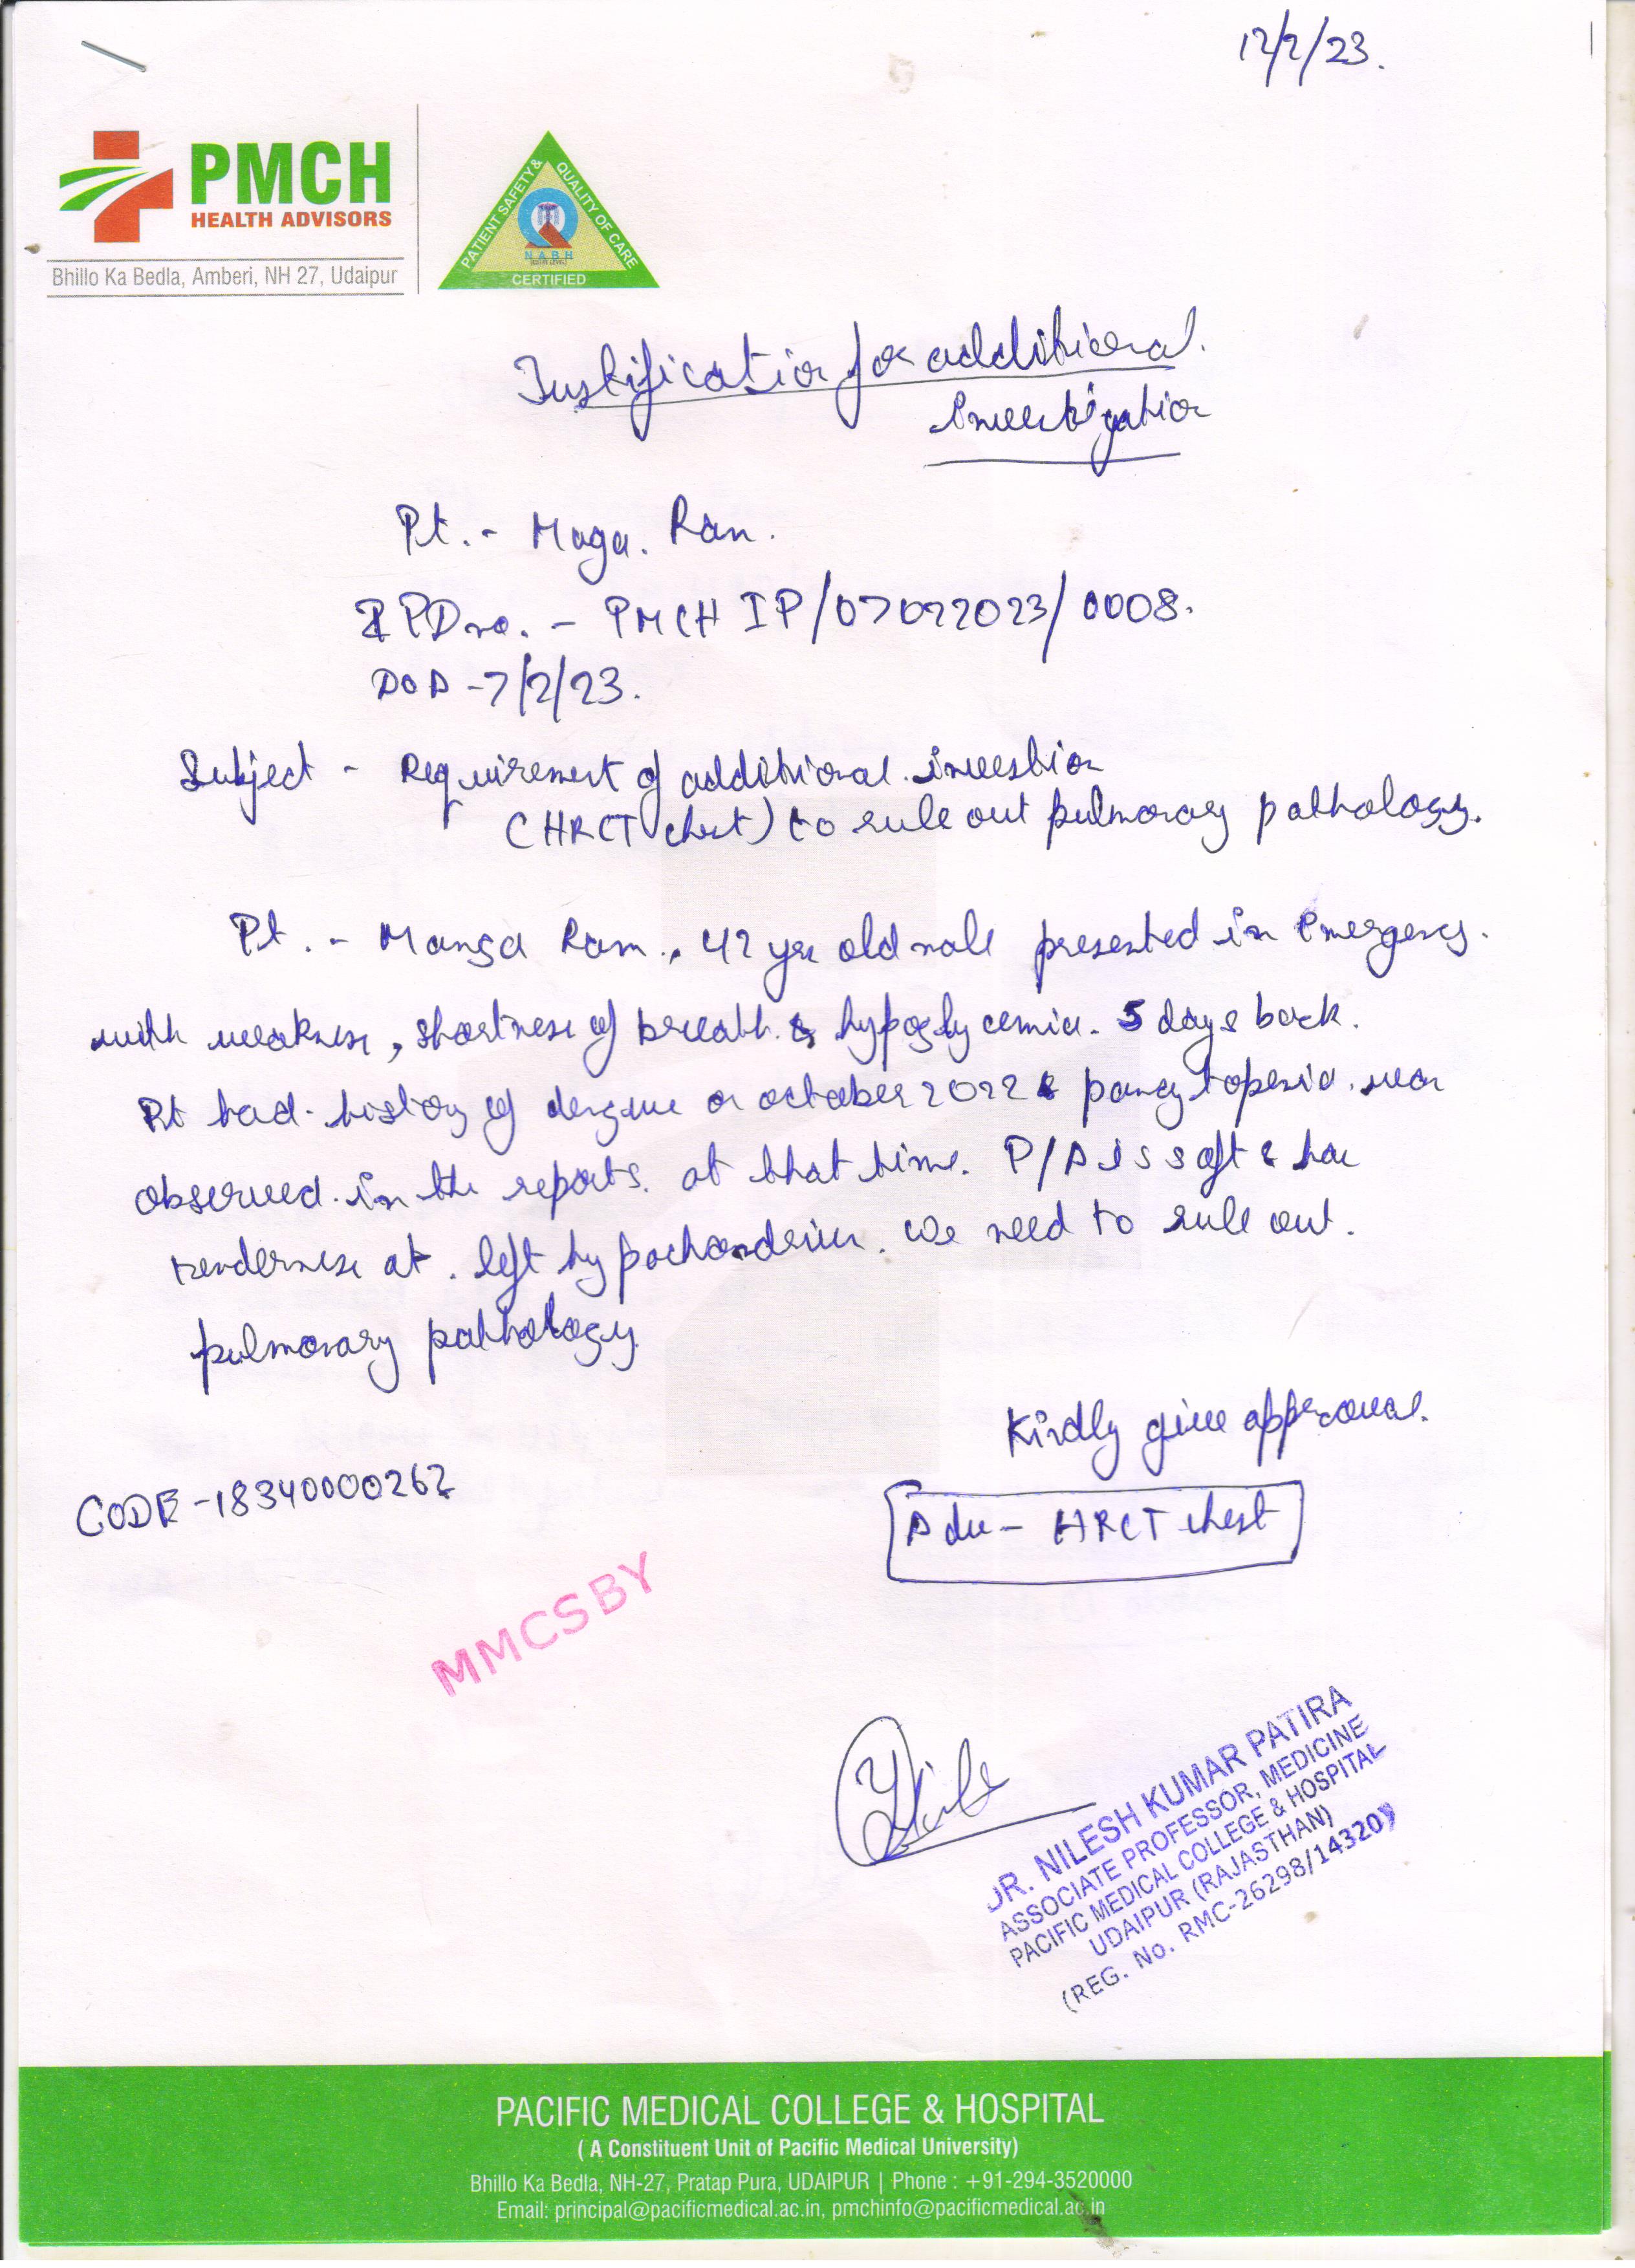 12/2/23.
PMCH
HEALTH ADVISORS
Bhillo Ka Bedla, Amberi, NH 27, Udaipur
PATIENT SAFETY & QUALITY OF CARE
NABH
CERTIFIED
Justification for additional
investigation
Pt. - Maga. Ram.
IPD no. - PMCH IP/07022023/0008.
DOA - 7/2/23.
Subject - Requirement of additional investion
(HRCT chest) to rule out pulmonary pathology.
Pt. - Manga Ram, 42 yrs old male presented in Emergency.
with weakness, shortness of breath & hypoglycemia. 5 days back.
Pt had history of dengue on october 2022 & pancytopenia. was
observed in the reports. at that time. P/A is soft & has
tenderness at. left hypochondrium. We need to rule out.
pulmonary pathology
Kindly give approval.
CODE - 18340000262
Adv - HRCT chest
MMCSBY
DR. NILESH KUMAR PATIRA
ASSOCIATE PROFESSOR, MEDICINE
PACIFIC MEDICAL COLLEGE & HOSPITAL
UDAIPUR (RAJASTHAN)
(REG. No. RMC-26298/14320)
PACIFIC MEDICAL COLLEGE & HOSPITAL
( A Constituent Unit of Pacific Medical University)
Bhillo Ka Bedla, NH-27, Pratap Pura, UDAIPUR | Phone : +91-294-3520000
Email: principal@pacificmedical.ac.in, pmchinfo@pacificmedical.ac.in